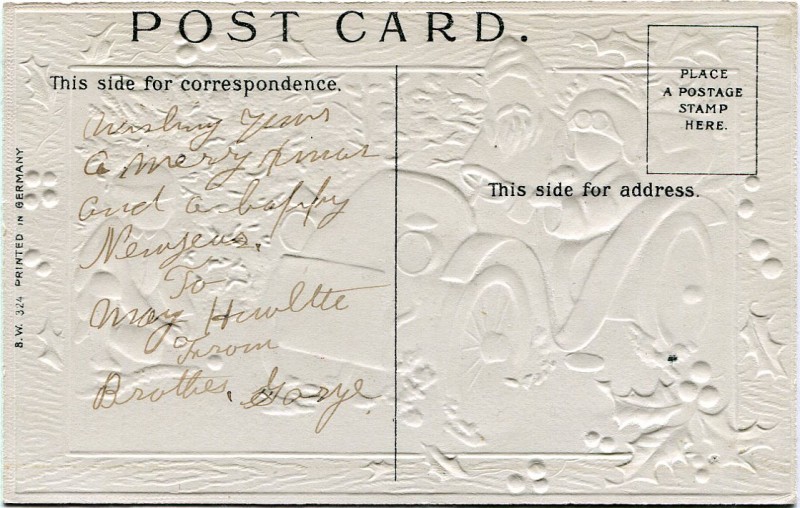 POST CARD.
This side for correspondence.
PLACE
A POSTAGE
STAMP
HERE.
This side for address.
Wishing youre
a merry Xmas
and a happy
Newyear.
To
May Hewlette
From
Brother, Gorge.
B.W. 324 PRINTED IN GERMANY